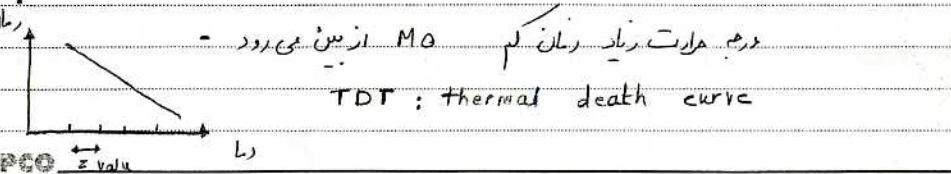 درجه حرارت زیاد زمان کم MO از بین می رود -
TDT : thermal death curve
دما
z valu
PCO